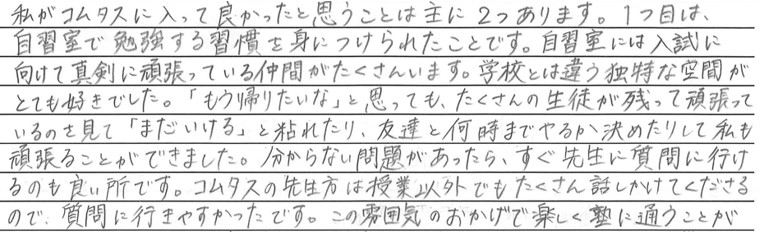 私がコムタスに入って良かったと思うことは主に2つあります。1つ目は、
自習室で勉強する習慣を身につけられたことです。自習室には入試に
向けて真剣に頑張っている仲間がたくさんいます。学校とは違う独特な空間が
とても好きでした。「もう帰りたいな」と思っても、たくさんの生徒が残って頑張って
いるのを見て「まだいける」と粘れたり、友達と何時までやるか決めたりして私も
頑張ることができました。分からない問題があったら、すぐ先生に質問に行け
るのも良い所です。コムタスの先生方は授業以外でもたくさん話しかけてくださる
ので、質問に行きやすかったです。この雰囲気のおかげで楽しく塾に通うことが